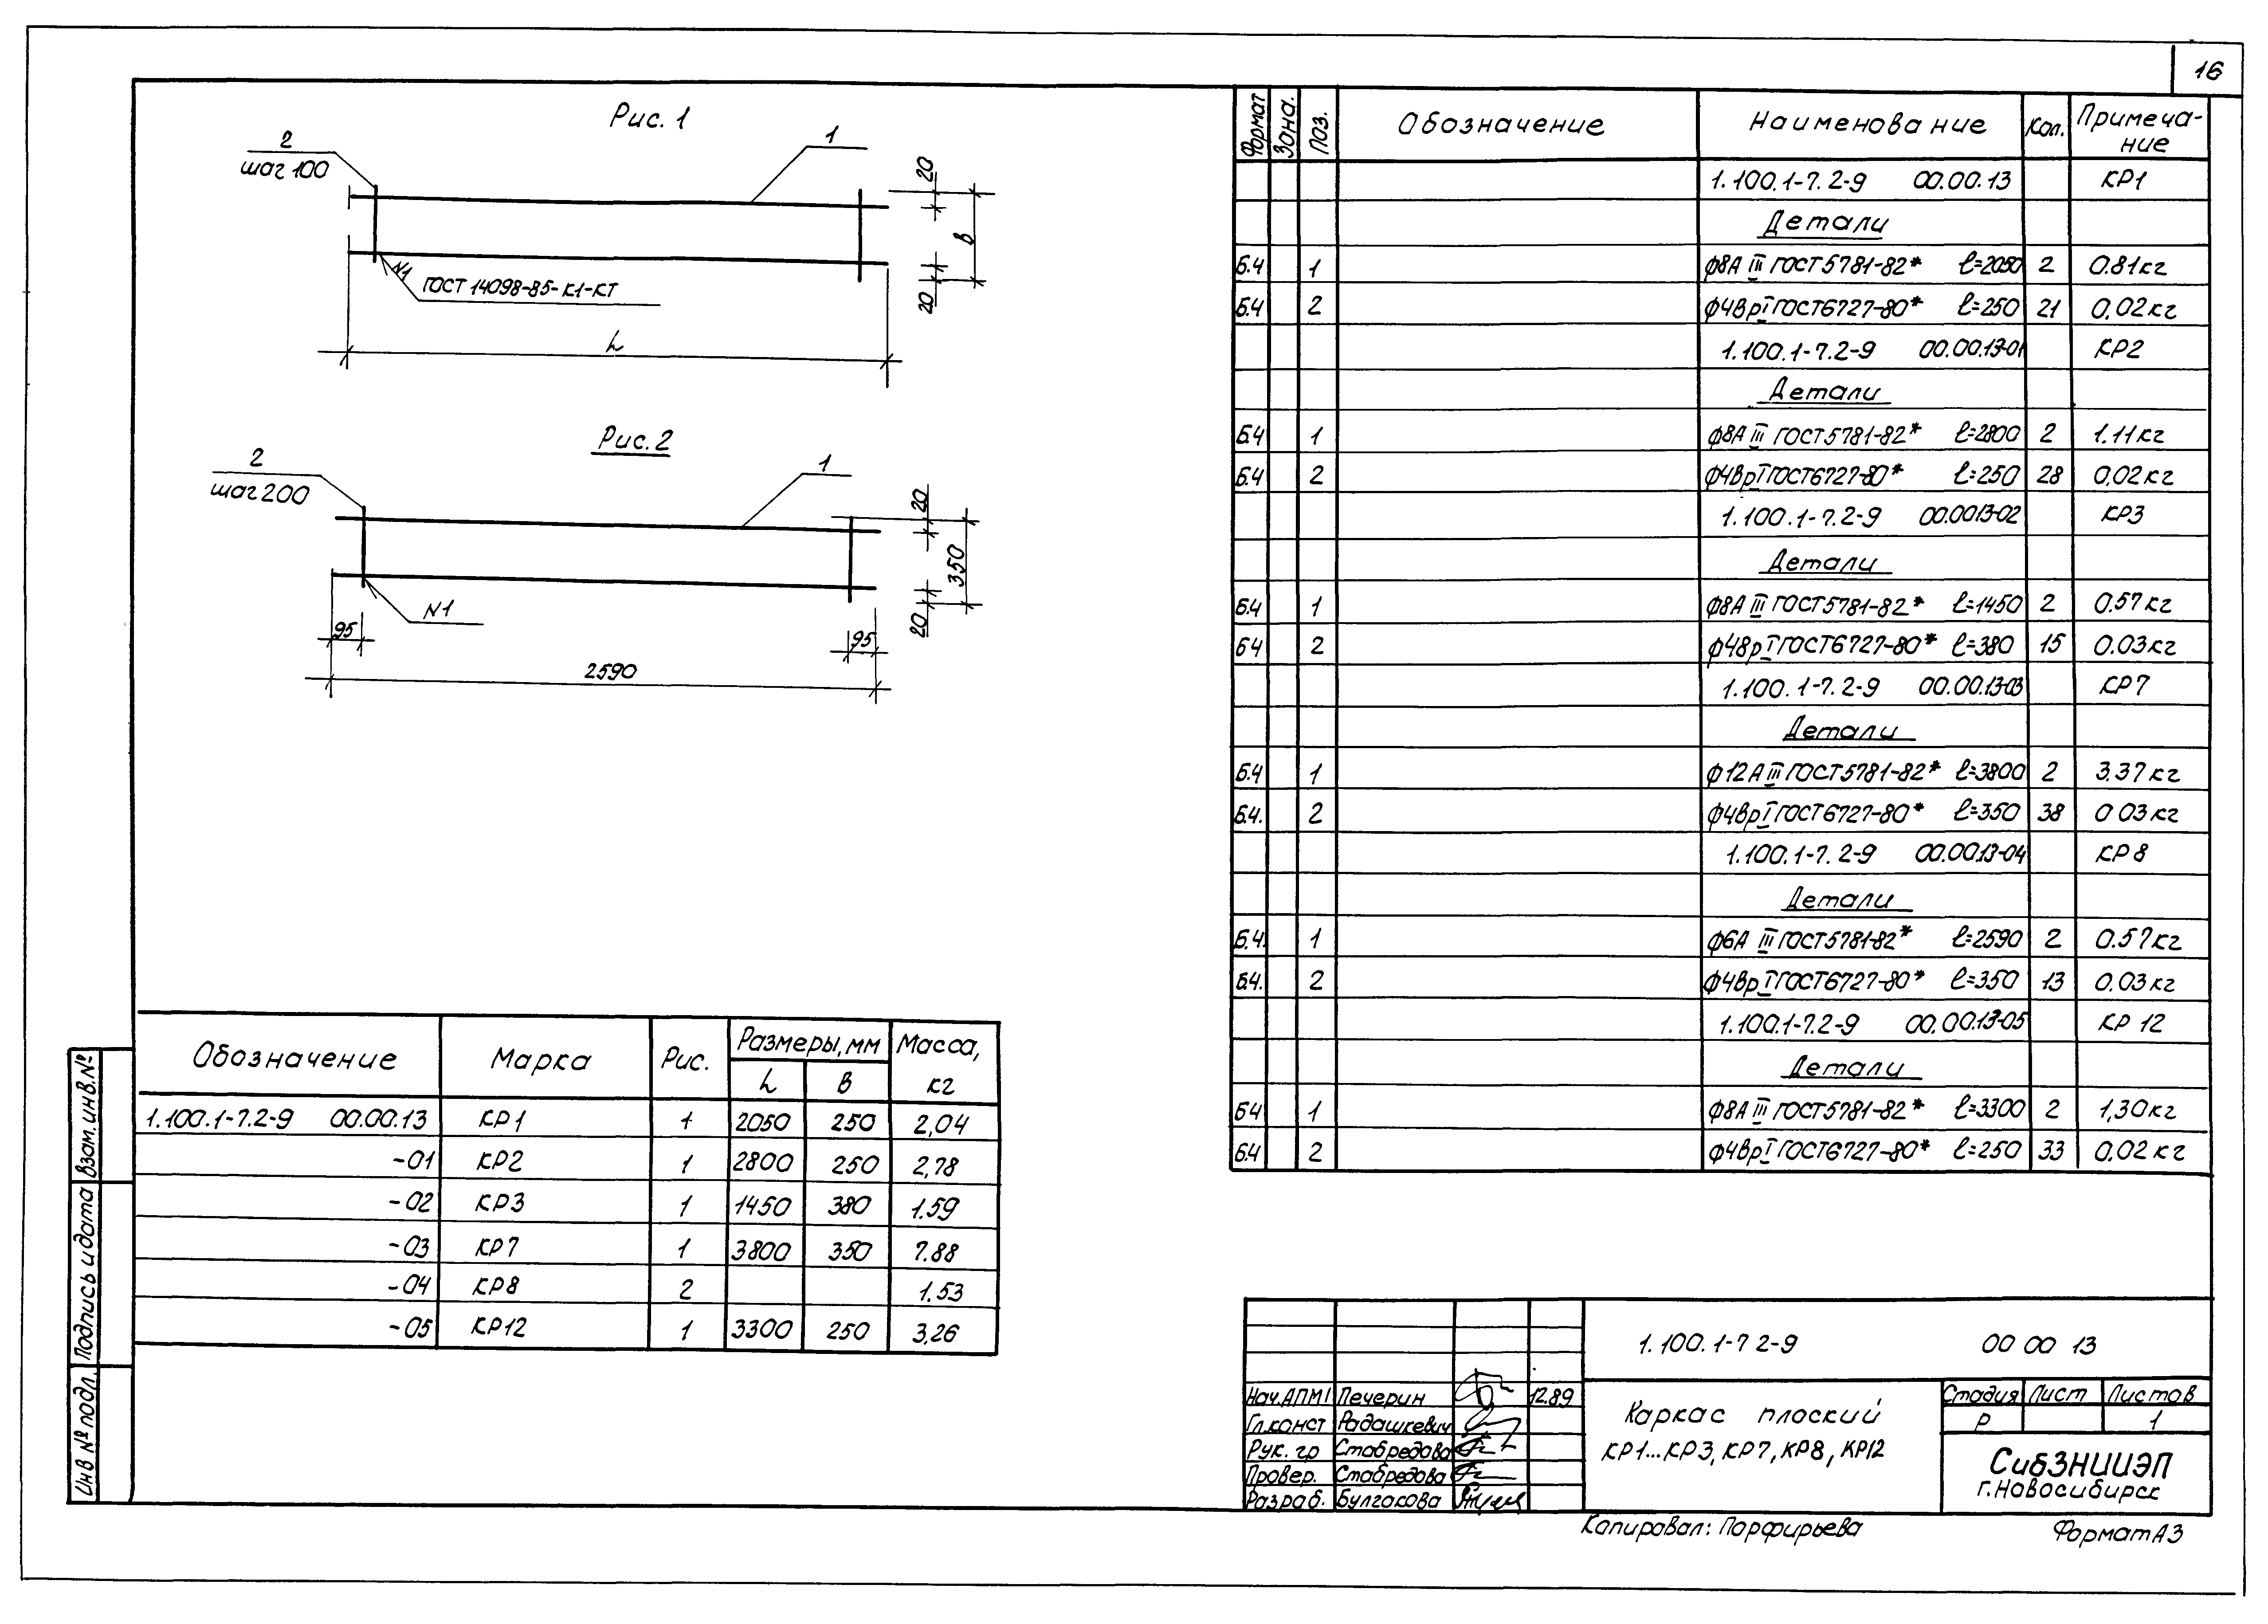 16
Рис. 1
2
шаг 100
1
20
В
20
N1
ГОСТ 14098-85-К1-КТ
L
Рис. 2
2
шаг 200
1
20
350
20
N1
95
95
2590
Обозначение Марка Рис. Размеры, мм Масса, кг
L В
1.100.1-7.2-9 00.00.13 КР1 1 2050 250 2,04
-01 КР2 1 2800 250 2,78
-02 КР3 1 1450 380 1.59
-03 КР7 1 3800 350 7.88
-04 КР8 2 1.53
-05 КР12 1 3300 250 3,26
Формат Зона. Поз. Обозначение Наименование Кол. Примеча-
ние
1.100.1-7.2-9 00.00.13 КР1
Детали
Б.4 1 ф8А III ГОСТ5781-82* ℓ=2050 2 0.81кг
Б.4 2 ф4Вр I ГОСТ6727-80* ℓ=250 21 0,02кг
1.100.1-7.2-9 00.00.13-01 КР2
Детали
Б.4 1 ф8А III ГОСТ5781-82* ℓ=2800 2 1.11кг
Б.4 2 ф4Вр I ГОСТ6727-80* ℓ=250 28 0,02кг
1.100.1-7.2-9 00.0013-02 КР3
Детали
Б.4 1 ф8А III ГОСТ5781-82* ℓ=1450 2 0.57кг
Б4 2 ф4Вр I ГОСТ6727-80* ℓ=380 15 0.03кг
1.100.1-7.2-9 00.00.13-03 КР7
Детали
Б.4 1 ф12А III ГОСТ5781-82* ℓ=3800 2 3.37кг
Б.4. 2 ф4Вр I ГОСТ6727-80* ℓ=350 38 0 03кг
1.100.1-7.2-9 00.00.13-04 КР8
Детали
Б.4. 1 ф6А III ГОСТ5781-82* ℓ=2590 2 0.57кг
Б.4. 2 ф4Вр I ГОСТ6727-80* ℓ=350 13 0.03кг
1.100.1-7.2-9 00.00.13-05 КР12
Детали
Б4 1 ф8А III ГОСТ5781-82* ℓ=3300 2 1,30кг
Б.4 2 ф4Вр I ГОСТ6727-80* ℓ=250 33 0.02кг
Инв № подл. Подпись и дата Взам. инв. №
1.100.1-7 2-9 00 00 13
Нач.АПМ1 Печерин 12.89
Гл.конст Радашкевич
Рук. гр Стабредова
Провер. Стабредова
Разраб. Булгакова
Каркас плоский
КР1...КР3, КР7, КР8, КР12
Стадия Лист Листов
Р 1
СибЗНИИЭП
г. Новосибирск
Копировал: Парфирьева Формат А3